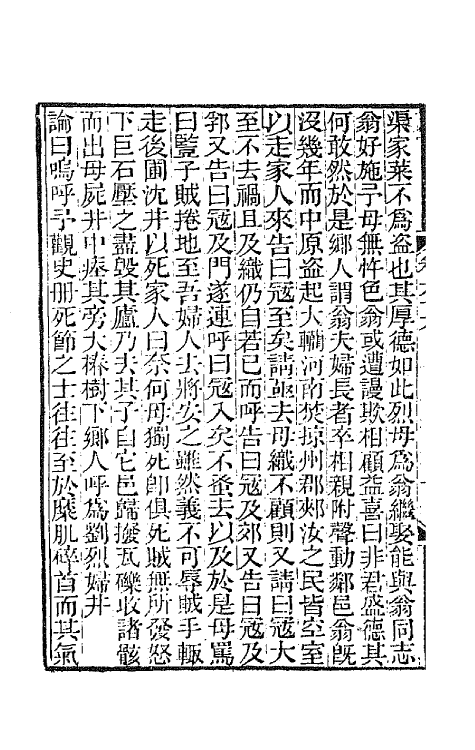 渠家菜不為盜也其厚德如此烈母為翁繼娶能與翁同志
翁好施予母無忤色翁或遭謾欺相顧益喜曰非君盛德其
何敢然於是鄉人謂翁夫婦長者卒相親附聲動鄰邑翁旣
沒幾年而中原盜起大躪河南焚掠州郡郟汝之民皆空室
以走家人來告曰寇至矣請亟去母織不顧則又請曰寇大
至不去禍且及織仍自若已而呼告曰寇及郊又告曰寇及
郛又告曰寇及門遂連呼曰寇入矣不蚤去以及於是母罵
曰豎子賊捲地至吾婦人去將安之雖然義不可辱賊手輒
走後圃沈井以死家人曰奈何母獨死卽俱死賊無所發怒
下巨石壓之盡毀其廬乃去其子自它邑歸撥瓦礫收諸骸
而出母屍井中瘞其旁大椿樹下鄉人呼為劉烈婦井
論曰嗚呼予觀史冊死節之士往往至於糜肌碎首而其氣